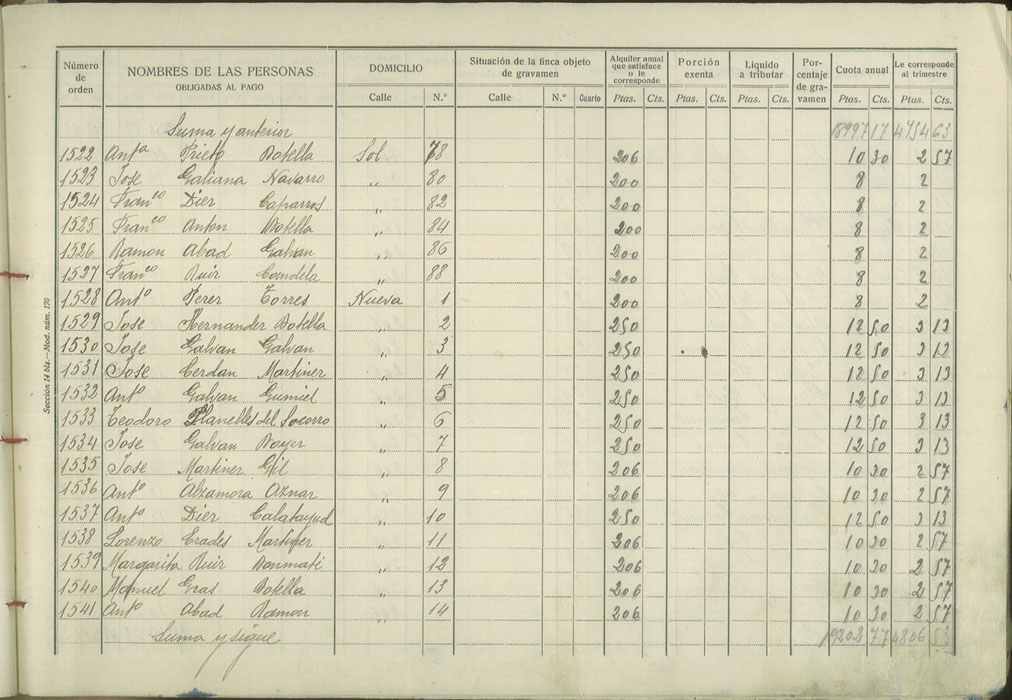 Número de orden
NOMBRES DE LAS PERSONAS
OBLIGADAS AL PAGO
DOMICILIO
Calle N.º
Situación de la finca objeto de gravamen
Calle N.º Cuarto
Alquiler anual que satisface o le corresponde
Ptas. Cts.
Porción exenta
Ptas. Cts.
Líquido a tributar
Ptas. Cts.
Porcentaje de gravamen
Cuota anual
Ptas. Cts.
Le corresponde al trimestre
Ptas. Cts.
Suma y anterior 18997 17 4754 63
1522 Antª Prieto Botella Sol 78 206 10 30 2 57
1523 Jose Galiana Navarro " 80 200 8 2
1524 Franco Dier Caparros " 82 200 8 2
1525 Franco Anton Botella " 84 200 8 2
1526 Ramon Abad Galvan " 86 200 8 2
1527 Franco Ruir Candela " 88 200 8 2
1528 Antº Perer Torres Nueva 1 200 8 2
1529 Jose Hernander Botella " 2 250 12 50 3 13
1530 Jose Galvan Galvan " 3 250 12 50 3 13
1531 Jose Cerdan Martiner " 4 250 12 50 3 13
1532 Antº Galvan Gumiel " 5 250 12 50 3 13
1533 Teodoro Planelles del Socorro " 6 250 12 50 3 13
1534 Jose Galvan Boyer " 7 250 12 50 3 13
1535 Jose Martiner Gil " 8 206 10 30 2 57
1536 Antº Alzamora Aznar " 9 206 10 30 2 57
1537 Antº Dier Calatayud " 10 250 12 50 3 13
1538 Lorenzo Crades Martiner " 11 206 10 30 2 57
1539 Margarita Ruir Bonmati " 12 206 10 30 2 57
1540 Manuel Gras Botella " 13 206 10 30 2 57
1541 Antº Abad Ramon " 14 206 10 30 2 57
Suma y sigue 19202 77 4806 53
Sección 14 bis.—Mod. núm. 170